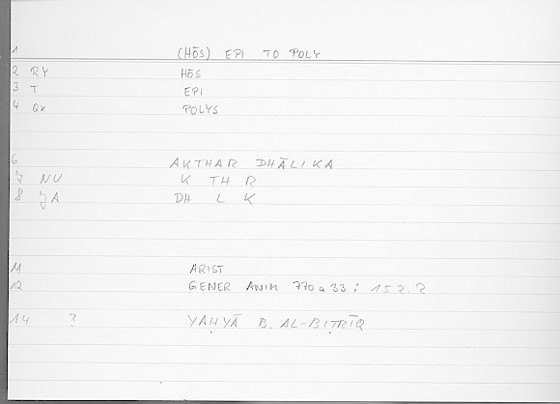 1 (HŌS) EPI TO POLY
2 RY HŌS
3 T EPI
4 Qx POLYS
6 AKTHAR DHĀLIKA
7 NU K TH R
8 JA DH L K
11 ARIST
12 GENER ANIM 770a33 : 152.2
14 ? YAḤYĀ B. AL-BIṬRĪQ